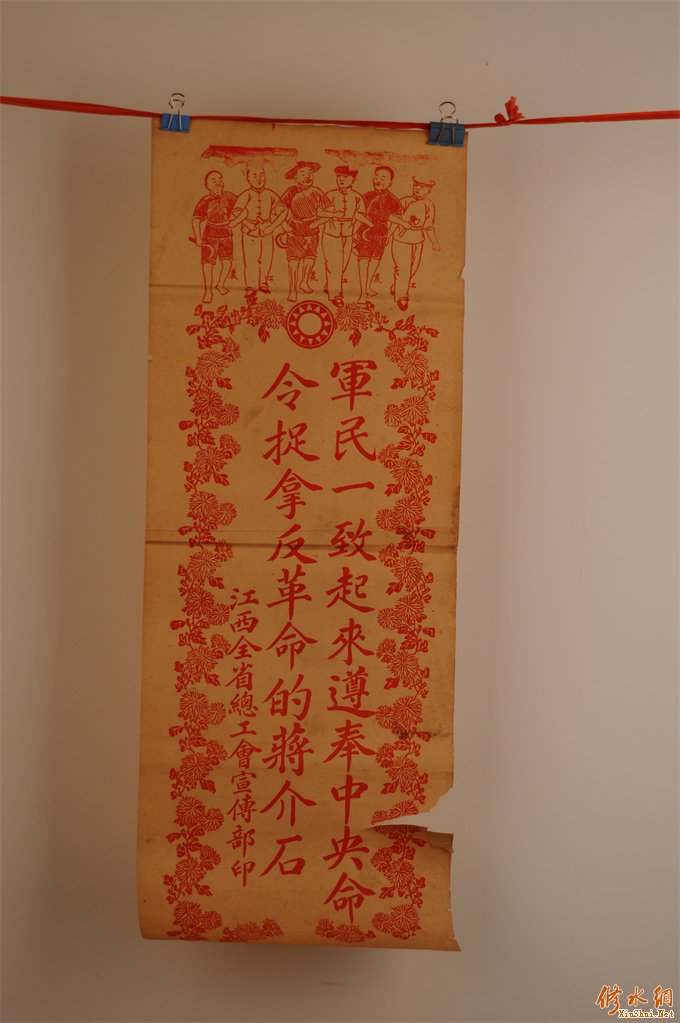 農
工
農
工
農
工
軍民一致起來遵奉中央命
令捉拿反革命的蔣介石
江西全省總工會宣傳部印
修水網
XiuShui.Net